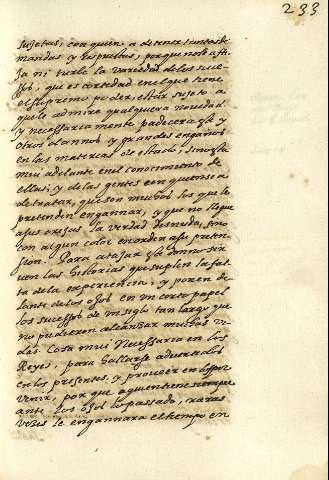 233
sujetas, con quien a de tener tantas de
mandas y respuestas, porque no le afli
ja ni turbe la variedad de los suce
sos, que es cortedad en el que tiene
el supremo poder, estar sujeto a
que le admire qualquera novedad
y necessariamente padecera este y
otros dannos y grandes engaños
en las materias de estado, si no esta
mui adelante en el conocimiento de
ellas, y de las gentes con quien se a
de tratar, que son muchos los que le
pretenden engannar, y que no llegue
a sus orejas la verdad desnuda, sino
con algun color en orden a su preten
sion. Para atajar este danno sir
ven las historias que suplen la fal
ta de la experiencia, y ponen de
lante de los ojos en un corto papel
los sucessos de un siglo tan largo que
no pudieron alcanzar muchas vi
das. Cosa mui Necessaria en los
Reyes, para hallarse advertidos
en los presentes, y proveer en lo por
venir, por que a quien tiene siempre
ante los ojos lo passado, raras
vezes le engannara el tiempo en